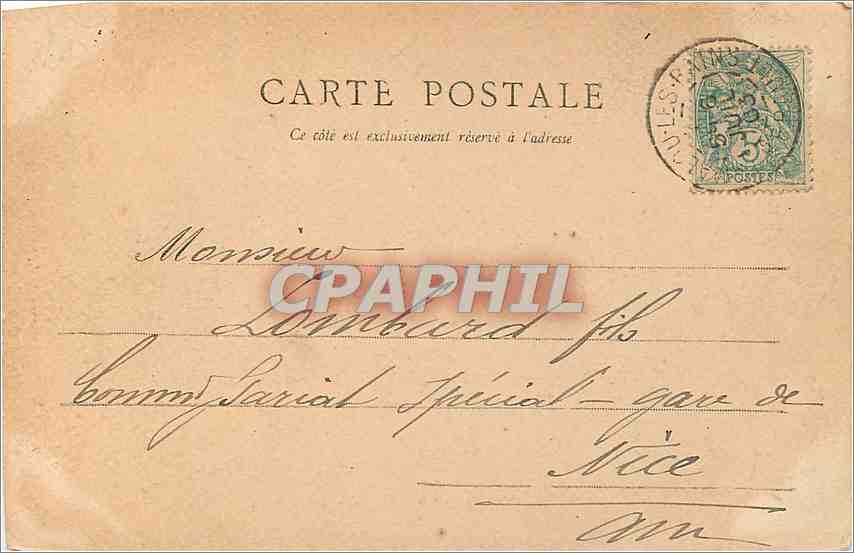 CARTE POSTALE
Ce côté est exclusivement réservé à l'adresse
5
POSTES
Monsieur
CPAPHIL
Lombard fils
Commissariat Spécial - gare de
Nice